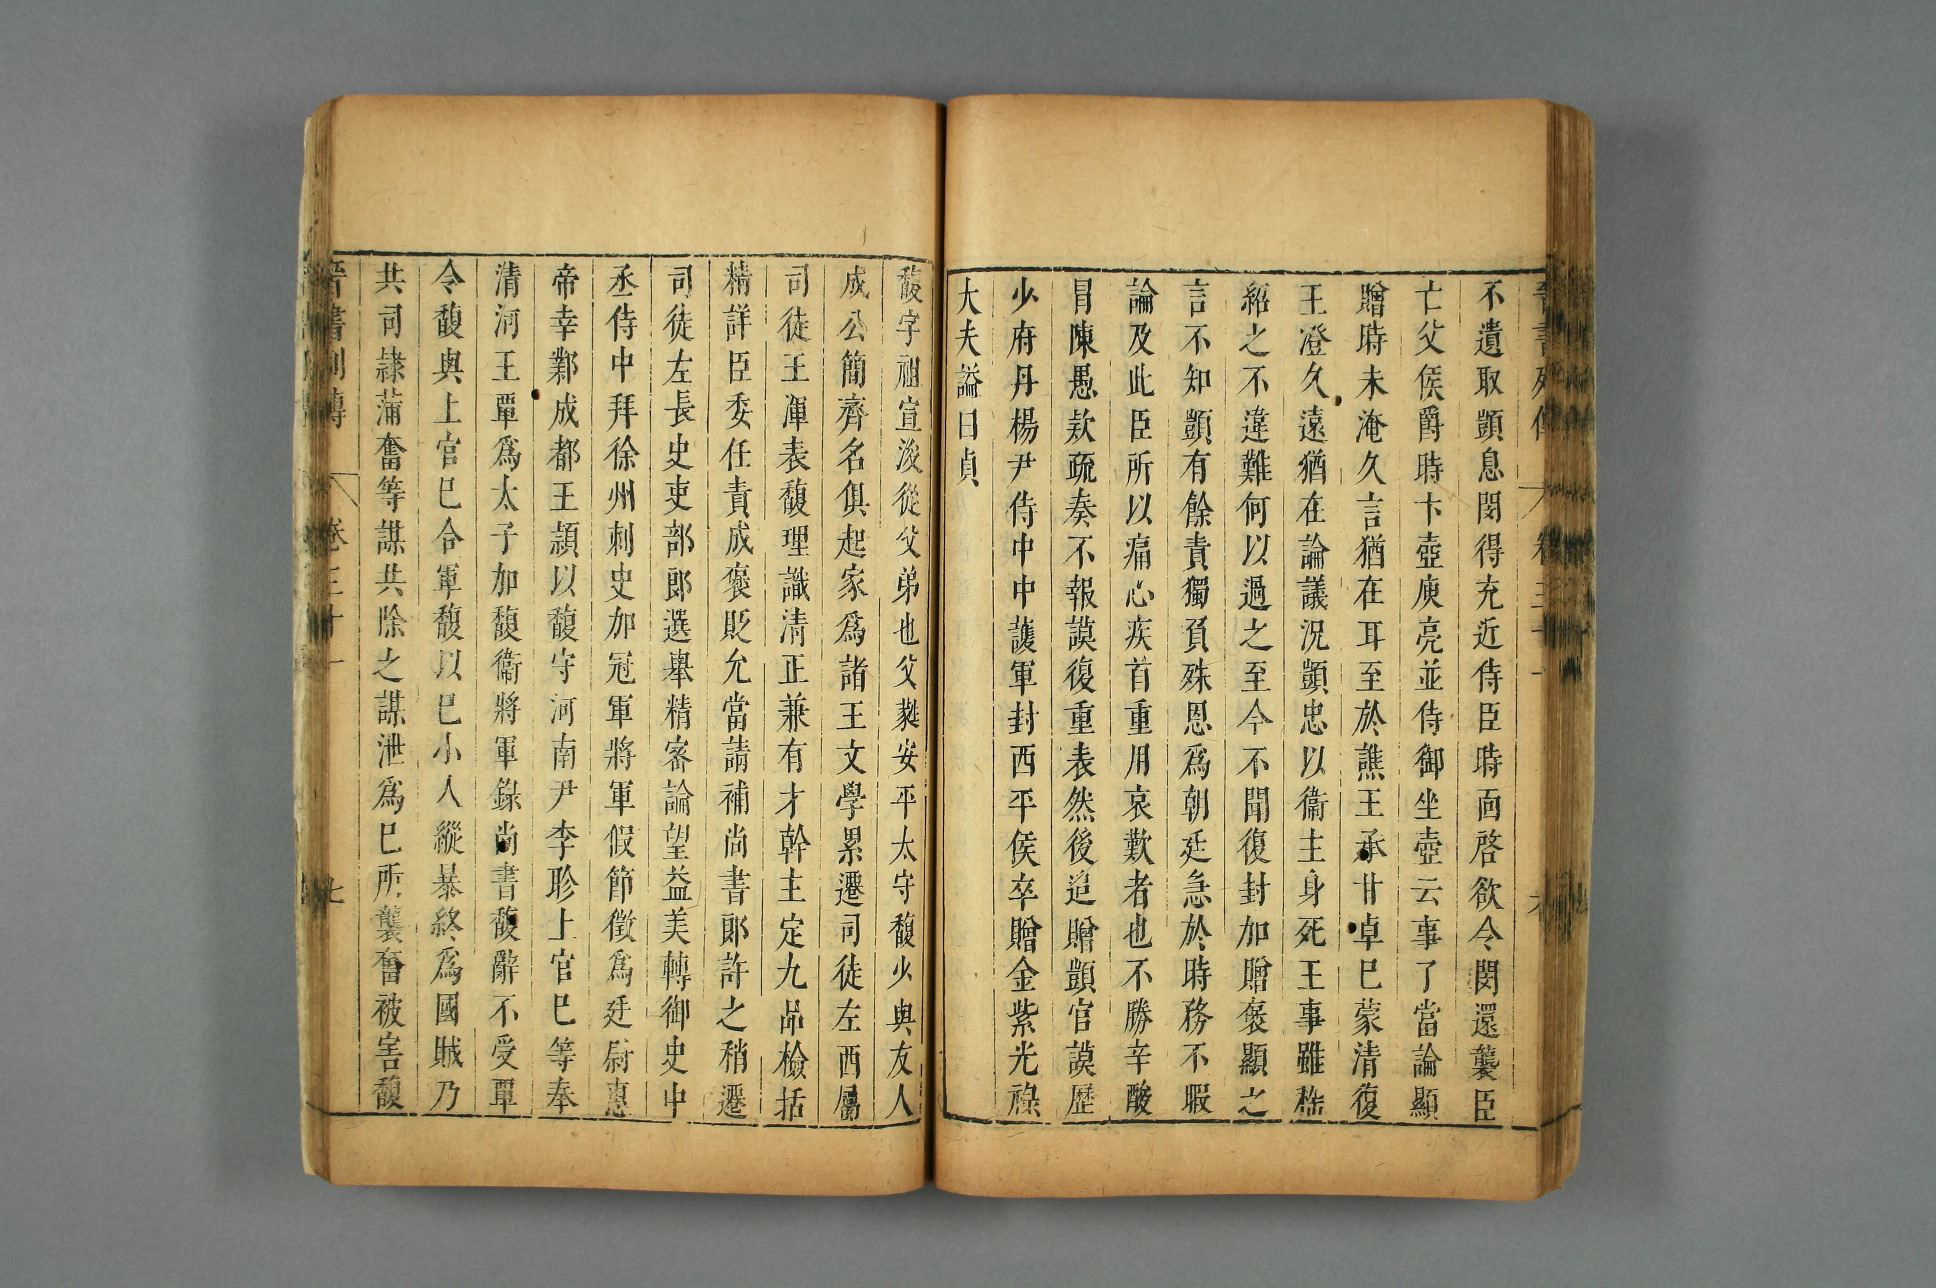 不遺取顗息閔得充近侍臣時面啓欲令閔還襲臣
亡父侯爵時卞壺庾亮並侍御坐壺云事了當論顯
贈時未淹久言猶在耳至於譙王承甘卓巳蒙清復
王澄久遠猶在論議況顗忠以衞主身死王事雖嵇
紹之不違難何以過之至今不聞復封加贈褒顯之
言不知顗有餘責獨負殊恩爲朝廷急於時務不暇
論及此臣所以痛心疾首重用哀歎者也不勝辛酸
冐陳愚欵疏奏不報謨復重表然後追贈顗官謨歷
少府丹楊尹侍中中護軍封西平侯卒贈金紫光祿
大夫謚曰貞
馥字祖宣浚從父弟也父蕤安平太守馥少與友人
成公簡齊名俱起家爲諸王文學累遷司徒左西屬
司徒王渾表馥理識清正兼有才幹主定九品檢括
精詳臣委任責成褒貶允當請補尚書郎許之稍遷
司徒左長史吏部郎選舉精密論望益美轉御史中
丞侍中拜徐州刺史加冠軍將軍假節徵爲廷尉惠
帝幸鄴成都王穎以馥守河南尹李聆上官巳等奉
清河王覃爲太子加馥衞將軍錄尚書馥辭不受覃
令馥與上官巳合軍馥以巳小人縱暴終爲國賊乃
共司隷蒲奮等謀共除之謀泄爲巳所襲奮被害馥
晉書列傳 卷三十一 七